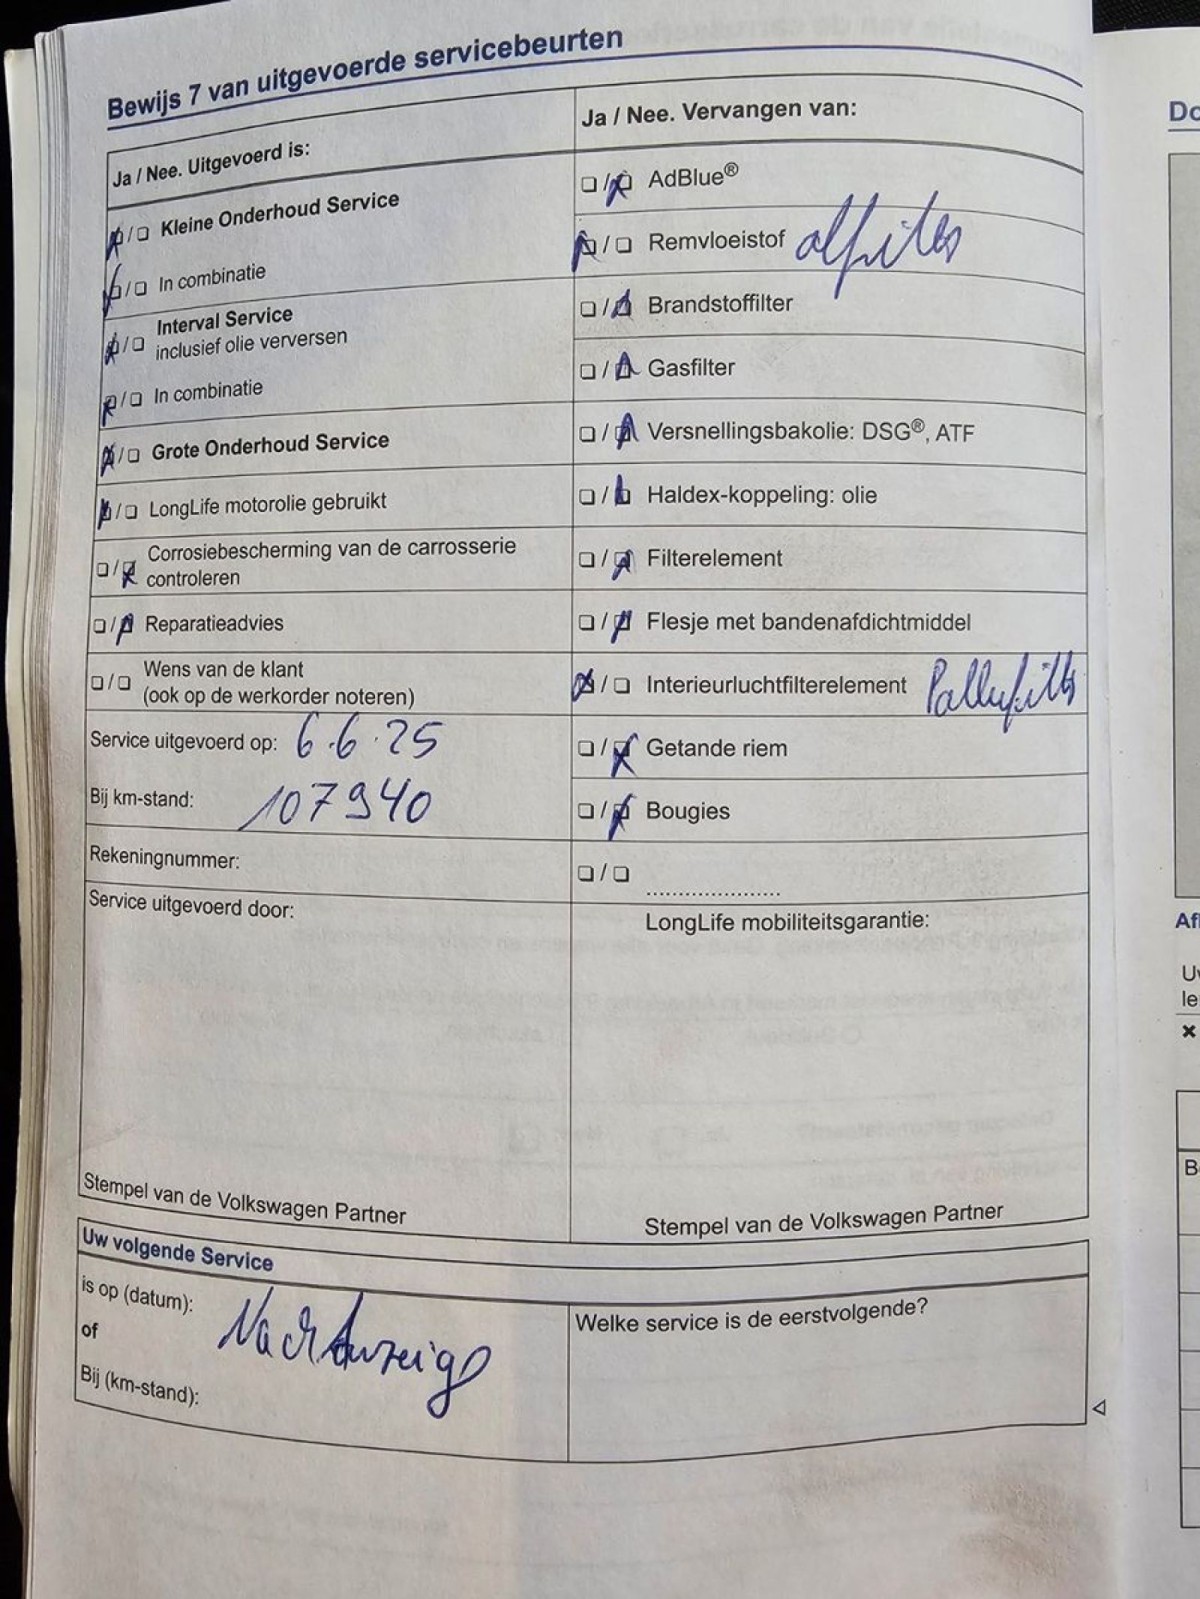 Bewijs 7 van uitgevoerde servicebeurten
Ja / Nee. Uitgevoerd is:
Kleine Onderhoud Service
In combinatie
Interval Service
inclusief olie verversen
In combinatie
Grote Onderhoud Service
LongLife motorolie gebruikt
Corrosiebescherming van de carrosserie
controleren
Reparatieadvies
Wens van de klant
(ook op de werkorder noteren)
Service uitgevoerd op: 6.6.25
Bij km-stand: 107940
Rekeningnummer:
Service uitgevoerd door:
Stempel van de Volkswagen Partner
Ja / Nee. Vervangen van:
AdBlue®
Remvloeistof
Brandstoffilter
Gasfilter
Versnellingsbakolie: DSG®, ATF
Haldex-koppeling: olie
Filterelement
Flesje met bandenafdichtmiddel
Interieurluchtfilterelement
Getande riem
Bougies
LongLife mobiliteitsgarantie:
Stempel van de Volkswagen Partner
Uw volgende Service
is op (datum):
of
Bij (km-stand):
Nach Anzeige
Welke service is de eerstvolgende?
Do
Af
Uw
le
B